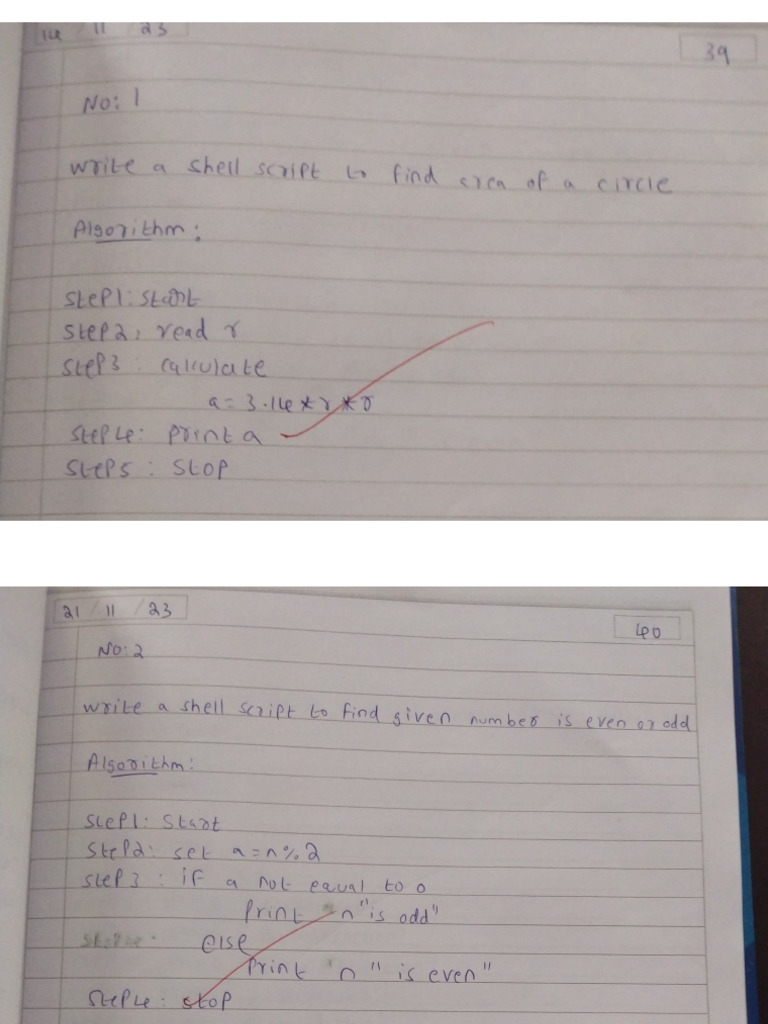 14 / 11 / 23
39
No: 1
write a shell script to find area of a circle
Algorithm:
Step1: Start
Step2: read r
Step3: calculate
a = 3.14 * r * r
Step4: Print a
Step5: Stop
21 / 11 / 23
40
No: 2
write a shell script to find given number is even or odd
Algorithm:
Step1: Start
Step2: set a=n%2
Step3: if a not equal to 0
Print n "is odd"
else
Print n "is even"
Step4: stop